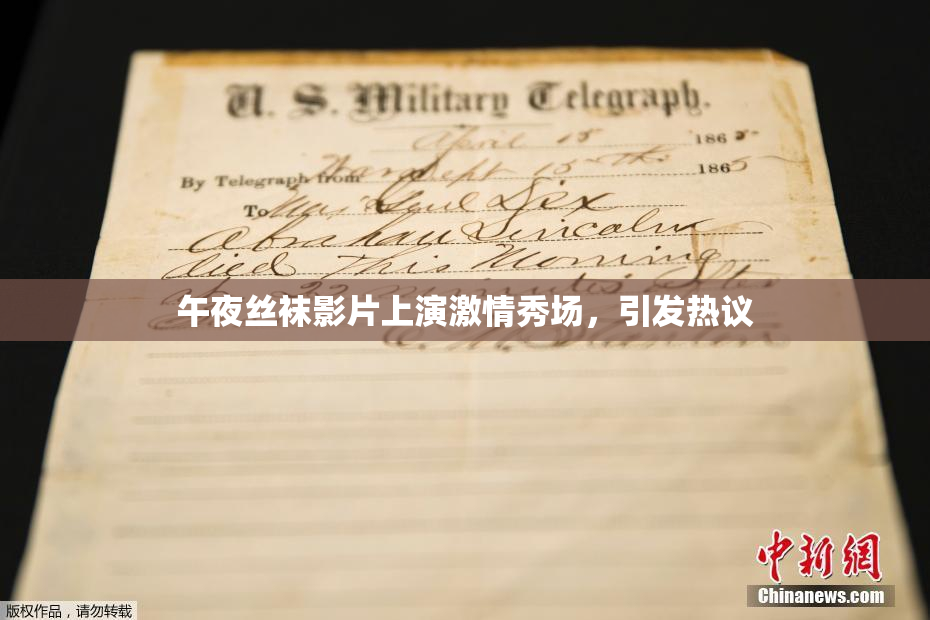 U. S. Military Telegraph.
April 15 1865
By Telegraph from War Dept 15th 1865
To Maj Genl Dix
Abraham Lincoln
died This Morning
at 22 minutes after
午夜丝袜影片上演激情秀场，引发热议
E. M. Stanton
中新网
Chinanews.com
版权作品，请勿转载